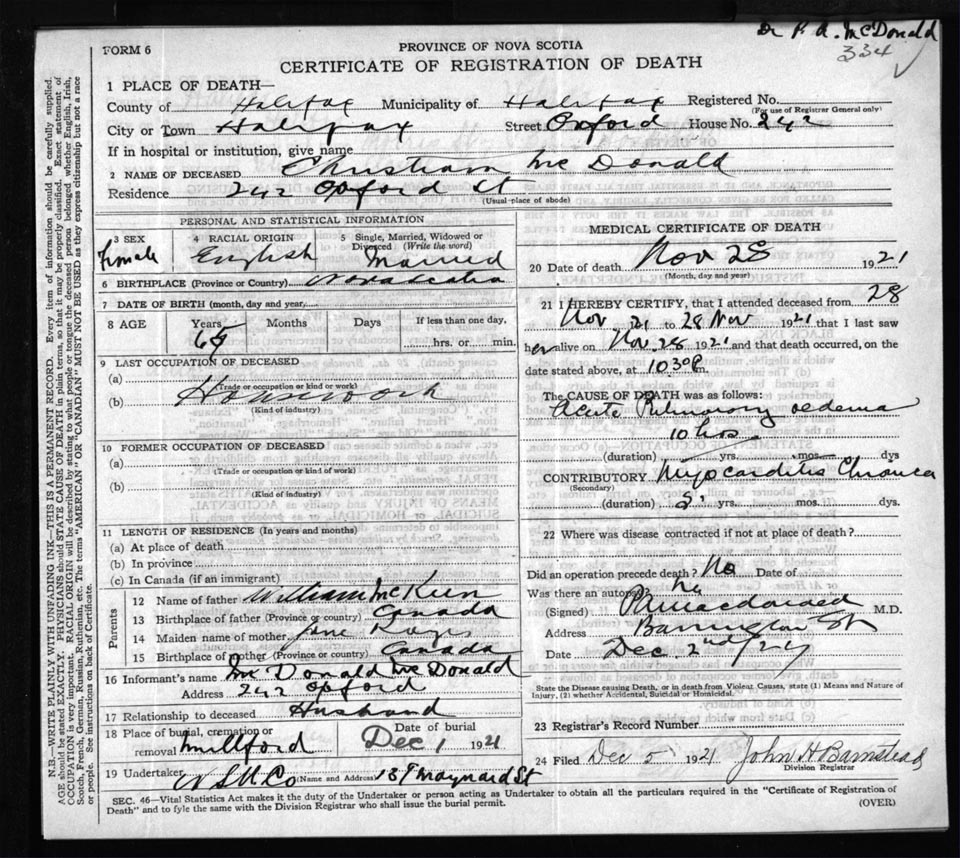 Dr P. A. McDonald
334
FORM 6
PROVINCE OF NOVA SCOTIA
CERTIFICATE OF REGISTRATION OF DEATH
1 PLACE OF DEATH—
County of Halifax Municipality of Halifax Registered No.
(For use of Registrar General only)
City or Town Halifax Street Oxford House No. 242
If in hospital or institution, give name
2 NAME OF DECEASED Christiann McDonald
Residence 242 Oxford St
(Usual place of abode)
PERSONAL AND STATISTICAL INFORMATION
3 SEX 4 RACIAL ORIGIN 5 Single, Married, Widowed or
Divorced (Write the word)
female English Married
6 BIRTHPLACE (Province or Country) Nova Scotia
7 DATE OF BIRTH (month, day and year)
8 AGE Years Months Days If less than one day,
65 hrs. or min.
9 LAST OCCUPATION OF DECEASED
(a)
(Trade or occupation or kind or work)
(b) Housework
(Kind of industry)
10 FORMER OCCUPATION OF DECEASED
(a)
(Trade or occupation or kind or work)
(b)
(Kind of industry)
11 LENGTH OF RESIDENCE (In years and months)
(a) At place of death
(b) In province
(c) In Canada (if an immigrant)
Parents
12 Name of father William McKeen
13 Birthplace of father (Province or country) Canada
14 Maiden name of mother Jane
15 Birthplace of mother (Province or country) Canada
16 Informant's name Mr Donald McDonald
Address 242 Oxford
17 Relationship to deceased Husband
18 Place of burial, cremation or Date of burial
removal Millford Dec 1 1921
19 Undertaker N S U Co (Name and Address) Maynard St
MEDICAL CERTIFICATE OF DEATH
20 Date of death Nov 28 1921
(Month, day and year)
21 I HEREBY CERTIFY, that I attended deceased from 28
Nov 21 to 28 Nov 1921 that I last saw
her alive on Nov. 28 1921 and that death occurred, on the
date stated above, at 10 30 P.m.
The CAUSE OF DEATH was as follows:
Acute Pulmonary oedema
10 hrs
(duration) yrs. mos. dys
CONTRIBUTORY Myocarditis Chronica
(Secondary)
(duration) yrs. mos. dys.
22 Where was disease contracted if not at place of death?
Did an operation precede death? No Date of
Was there an autopsy No
(Signed) M.D.
Address Barrington St
Date Dec 2nd
State the Disease causing Death, or in death from Violent Causes, state (1) Means and Nature of
Injury, (2) whether Accidental, Suicidal or Homicidal.
23 Registrar's Record Number
24 Filed Dec 5 1921 John H Barnstead
Division Registrar
SEC. 46—Vital Statistics Act makes it the duty of the Undertaker or person acting as Undertaker to obtain all the particulars required in the "Certificate of Registration of
Death" and to fyle the same with the Division Registrar who shall issue the burial permit.
(OVER)
N.B.—WRITE PLAINLY WITH UNFADING INK—THIS IS A PERMANENT RECORD. Every item of information should be carefully supplied.
AGE should be stated EXACTLY. PHYSICIANS should STATE CAUSE OF DEATH in plain terms, so that it may be properly classified. Exact statement of
OCCUPATION is very important. RACIAL ORIGIN will be described by stating to what people or tongue the deceased person belonged whether English, Irish,
Scotch, French, German, Russian, Ruthenian, etc. The terms "AMERICAN" OR "CANADIAN" MUST NOT BE USED as they express citizenship but not a race
or people. See instructions on back of Certificate.